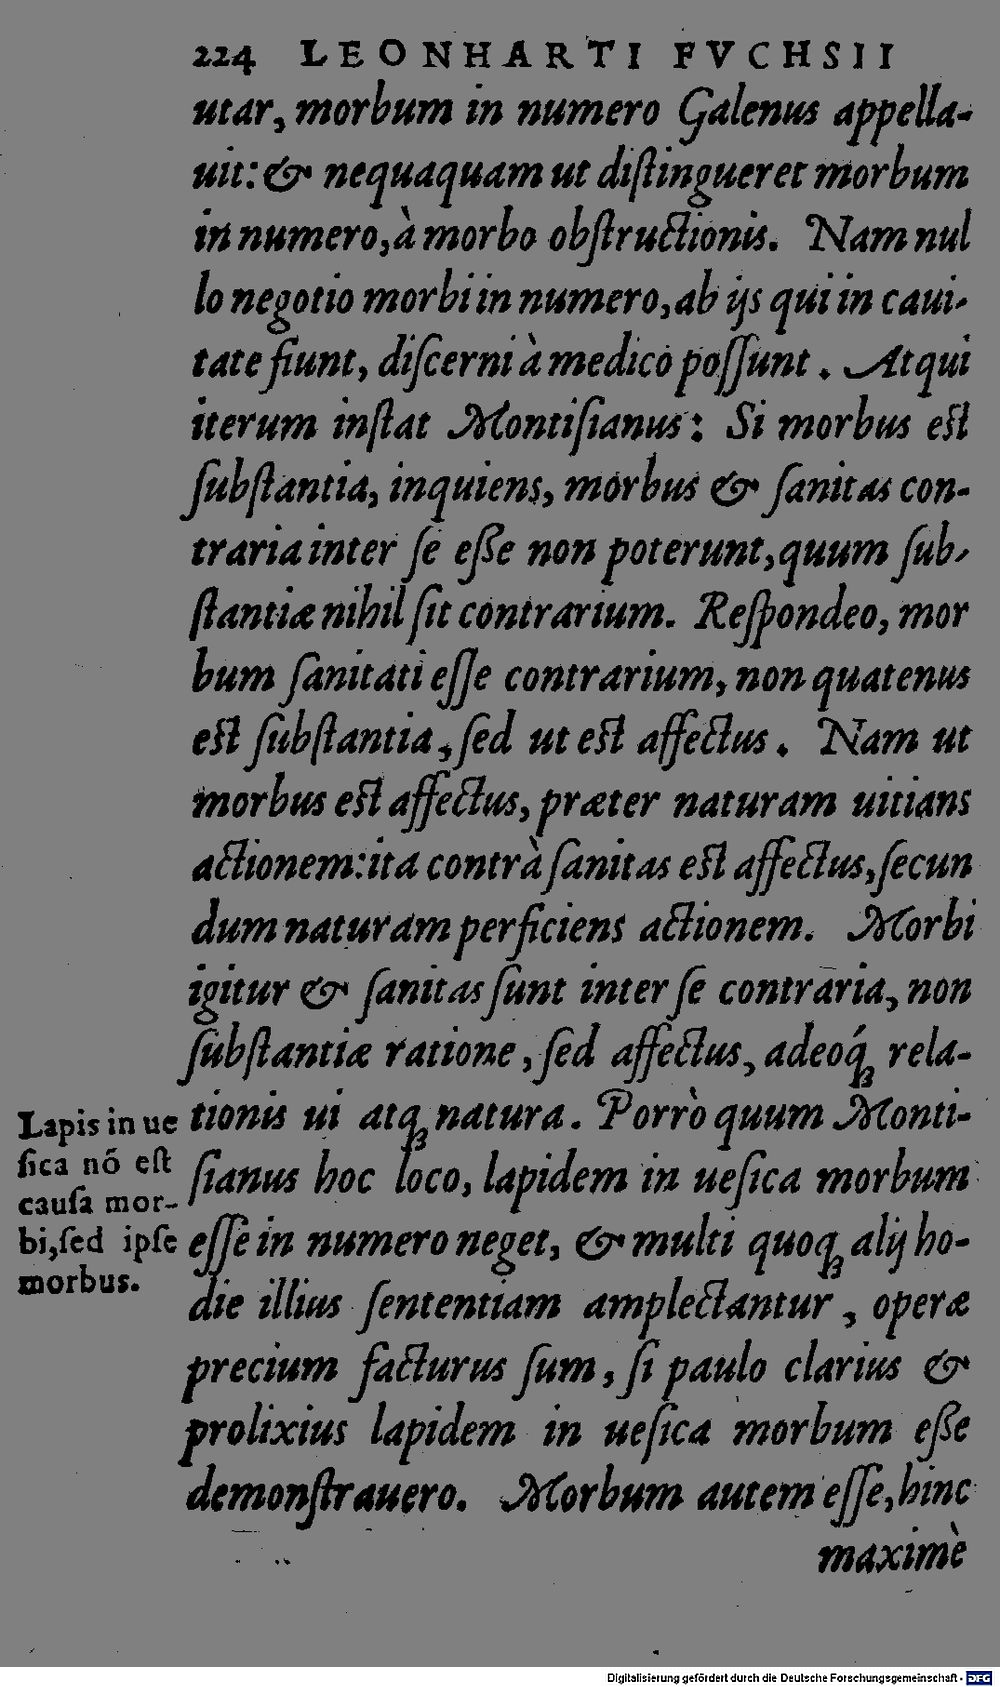 224 LEONHARTI FVCHSII
utar, morbum in numero Galenus appella-
uit: & nequaquam ut distingueret morbum
in numero, à morbo obstructionis. Nam nul
lo negotio morbi in numero, ab ijs qui in caui-
tate fiunt, discerni à medico possunt. Atqui
iterum instat Montisianus: Si morbus est
substantia, inquiens, morbus & sanitas con-
traria inter se eße non poterunt, quum sub-
stantiæ nihil sit contrarium. Respondeo, mor
bum sanitati esse contrarium, non quatenus
est substantia, sed ut est affectus. Nam ut
morbus est affectus, præter naturam uitians
actionem: ita contrà sanitas est affectus, secun
dum naturam perficiens actionem. Morbi
igitur & sanitas sunt inter se contraria, non
substantiæ ratione, sed affectus, adeoq́ꝫ rela-
tionis ui atqꝫ natura. Porrò quum Monti-
sianus hoc loco, lapidem in uesica morbum
esse in numero neget, & multi quoqꝫ alij ho-
die illius sententiam amplectantur, operæ
precium facturus sum, si paulo clarius &
prolixius lapidem in uesica morbum eße
demonstrauero. Morbum autem esse, hinc
maximè
Lapis in ue
sica nõ est
causa mor-
bi, sed ipse
morbus.
Digitalisierung gefördert durch die Deutsche Forschungsgemeinschaft - DFG